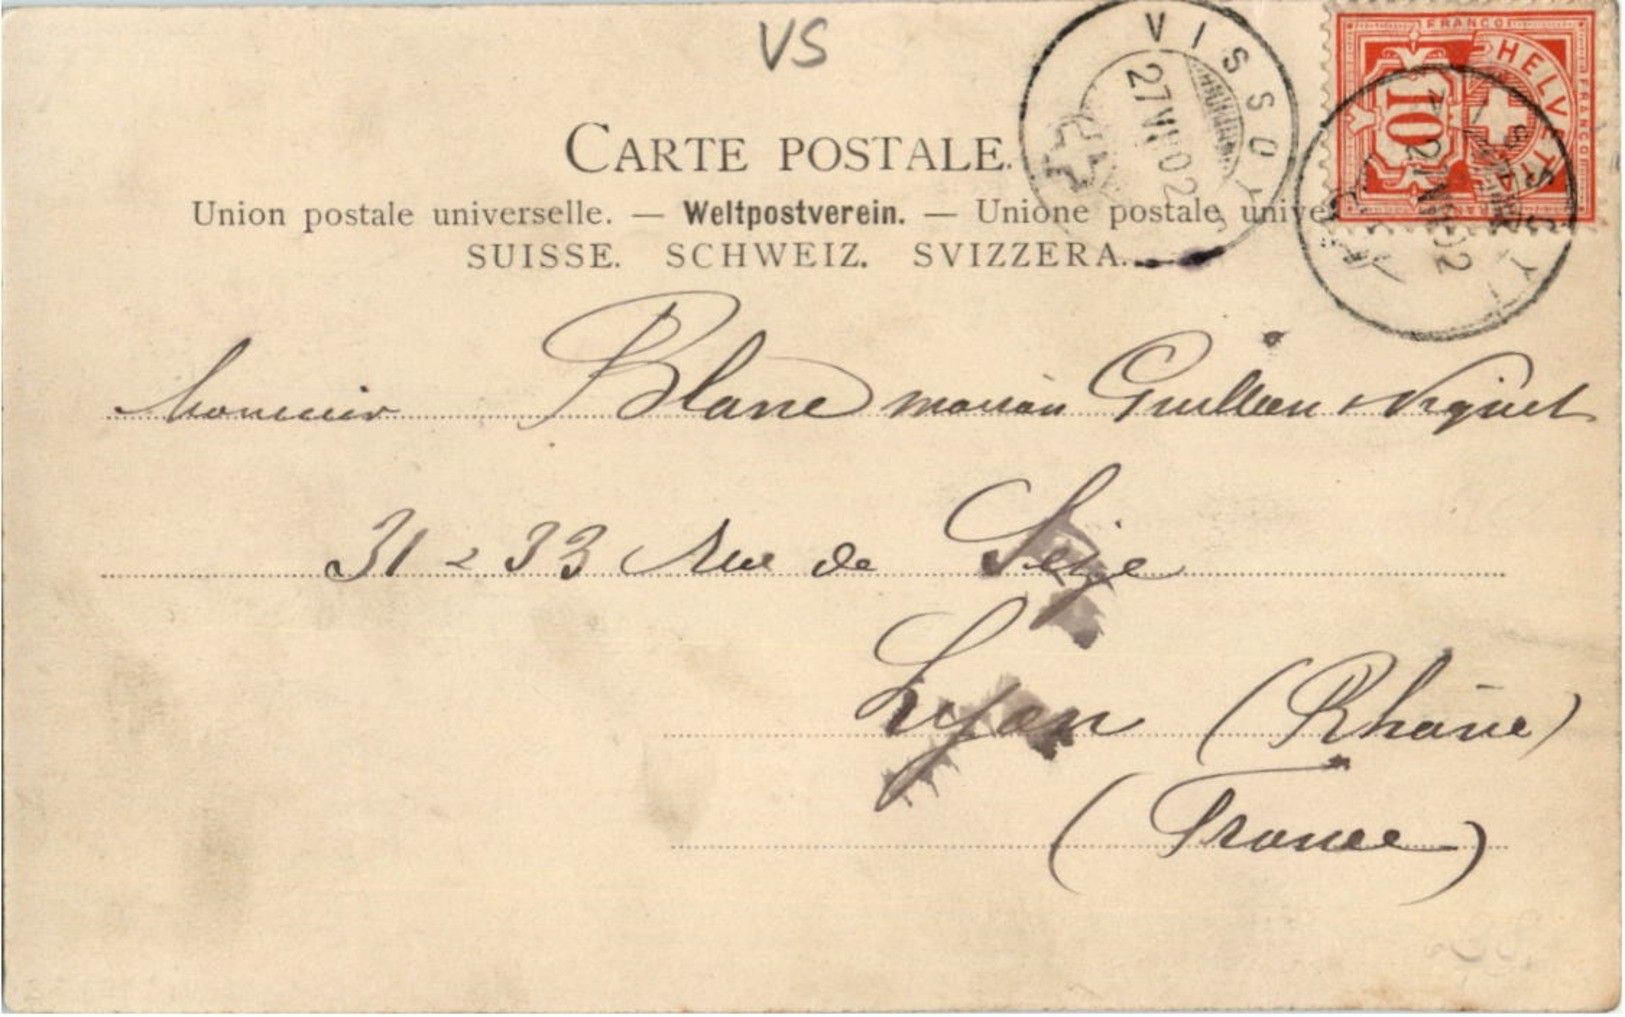 VS
FRANCO
HELVETIA
FRANCO
10
VISSOYE
27 VII 02
VISSOYE
27 VII 02
CARTE POSTALE.
Union postale universelle. — Weltpostverein. — Unione postale unive
SUISSE. SCHWEIZ. SVIZZERA.
Monsieur Blanc maison Guillien & Viguet
31 - 33 Rue de Sèze
Lyon (Rhône)
(France)